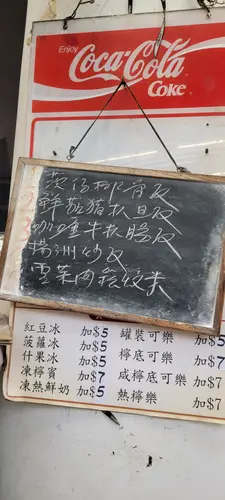 Enjoy
Coca-Cola
Coke
茨仔排骨反
鮮茄猪扒旦反
咖喱牛扒腸反
揚洲炒反
雪菜肉絲紋米
紅豆冰 加$5 罐裝可樂 加$5
菠蘿冰 加$5 檸底可樂 加$7
什果冰 加$5 咸檸底可樂 加$7
凍檸賓 加$7 熱檸樂 加$7
凍熱鮮奶 加$5